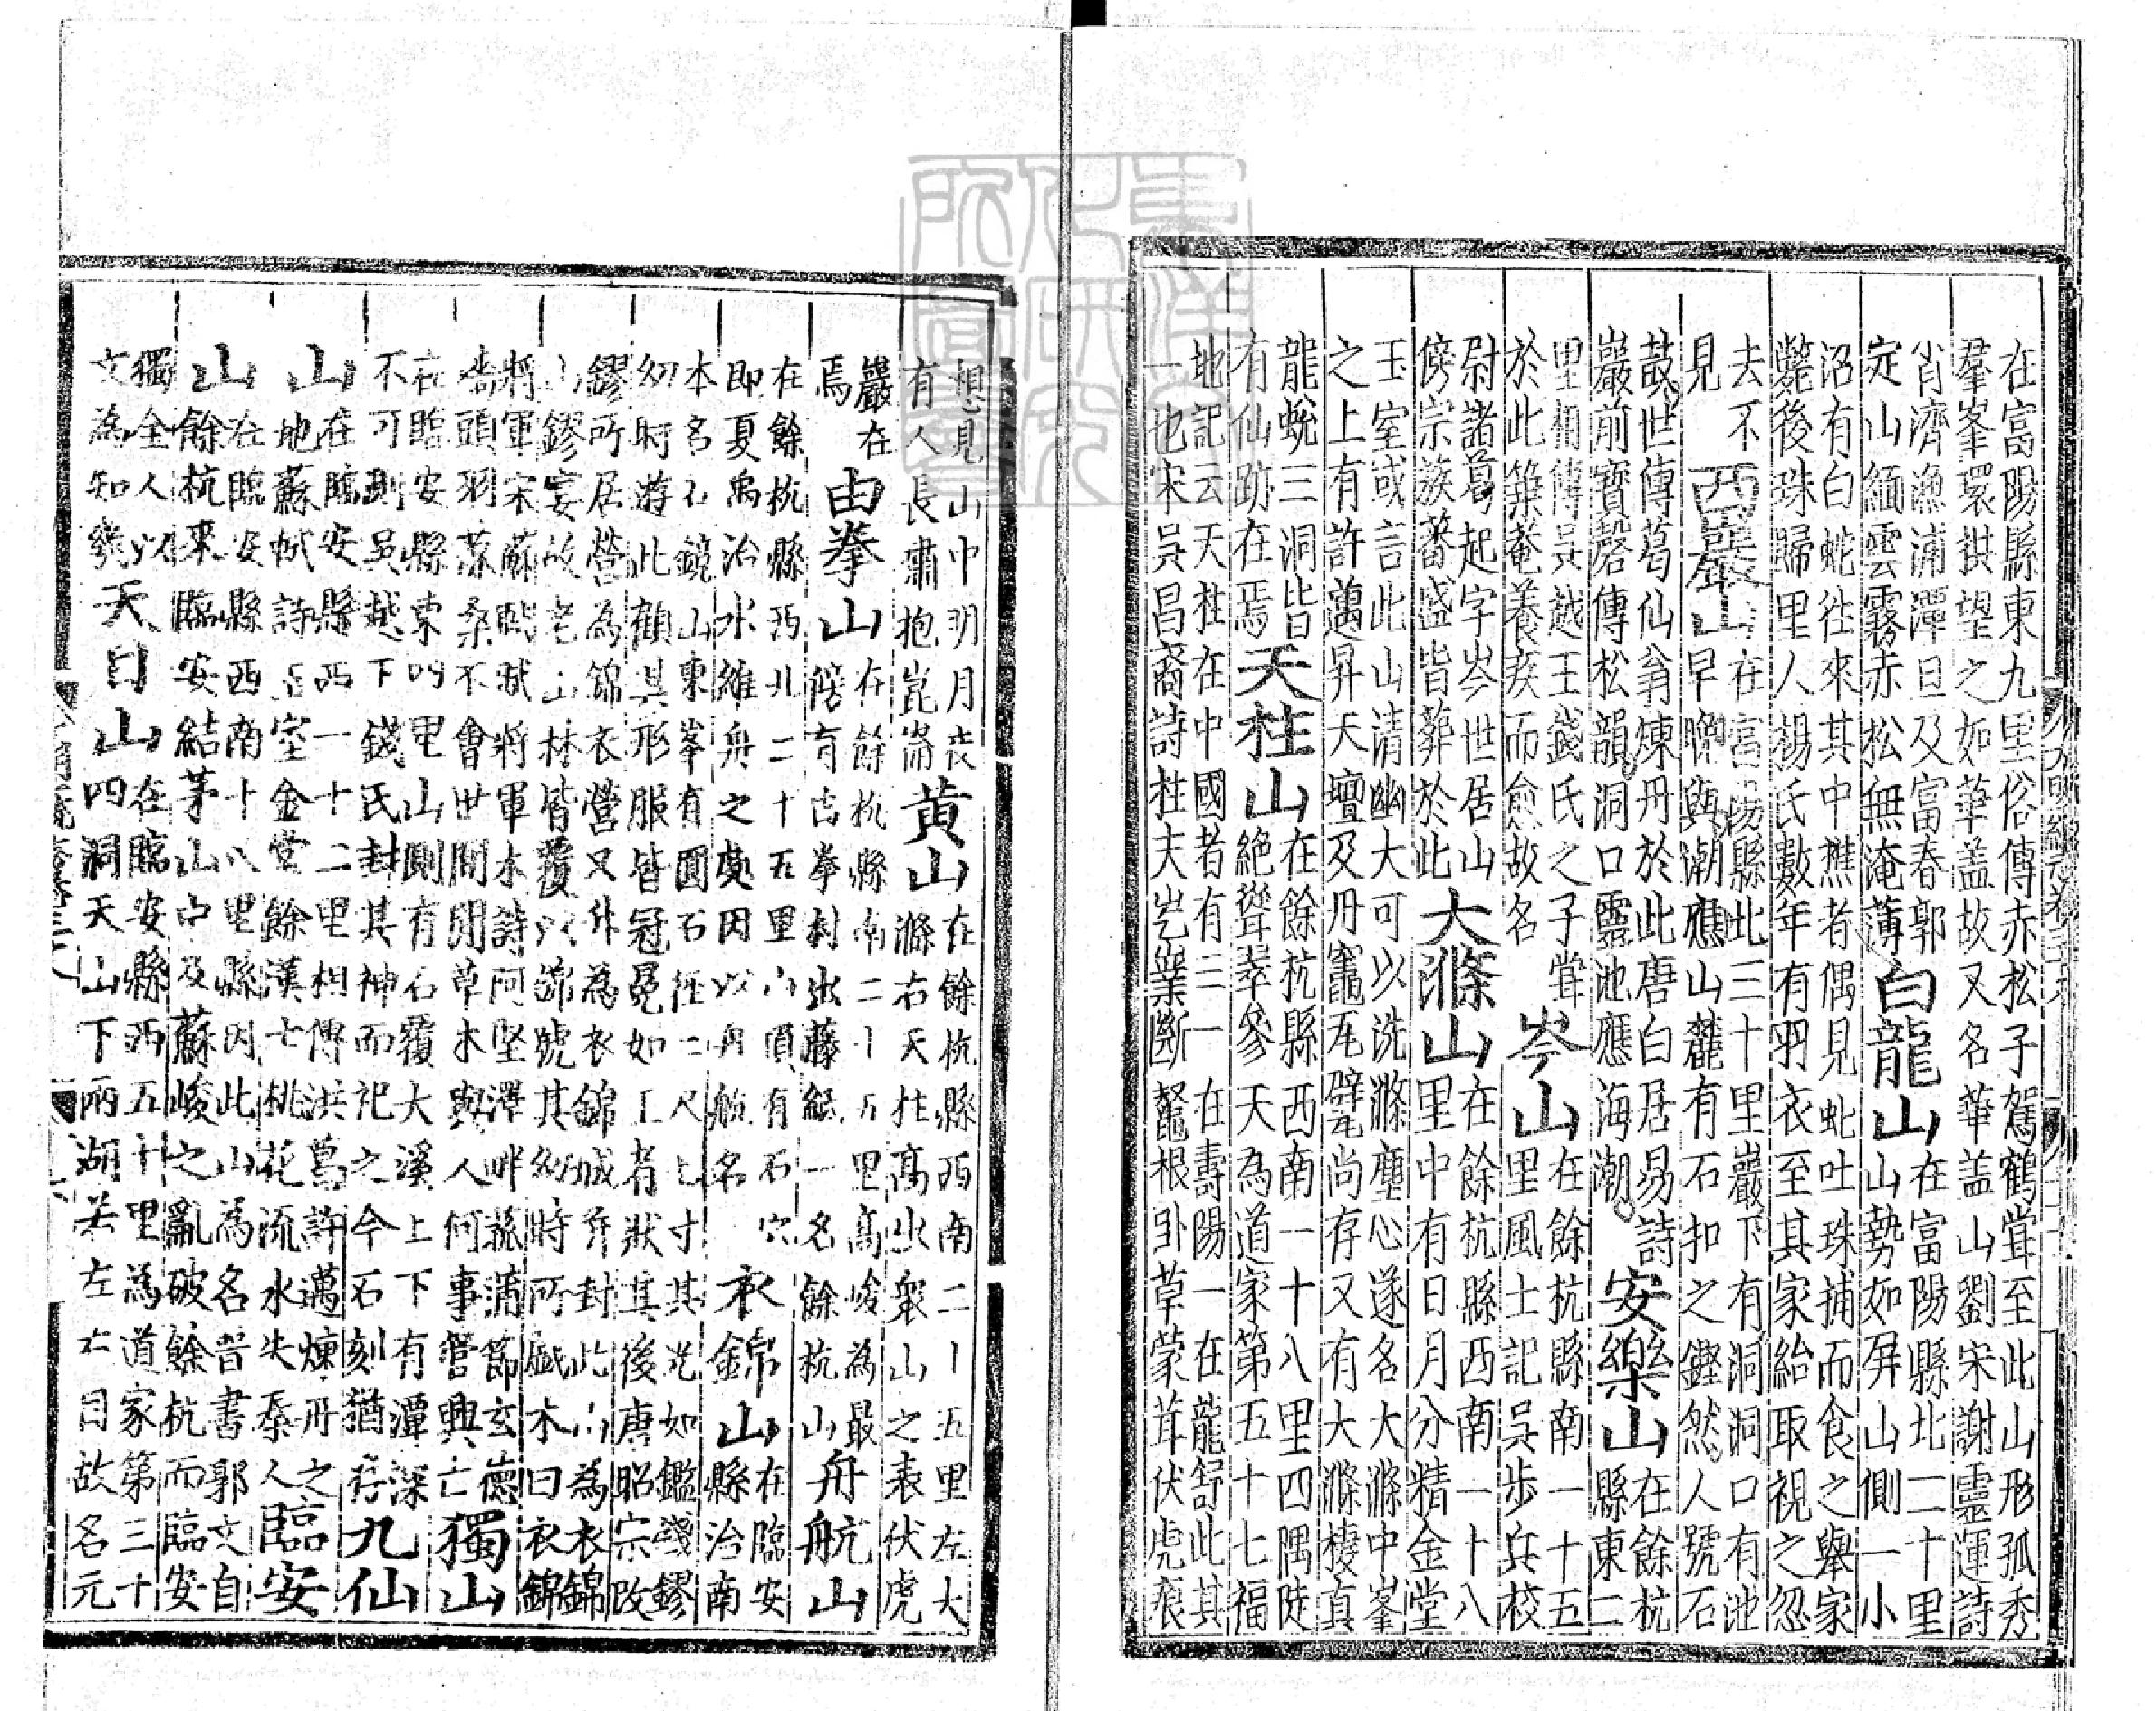 在富陽縣東九里俗傳赤松子駕鶴甞至此山形孤秀
羣峯環拱望之如華盖故又名華盖山劉宋謝靈運詩
肖濟漁浦潭旦及富春郭
定山緬雲霧赤松無淹薄
白龍山
在富陽縣北二十里
山勢如屏山側一小
沼有白蛇徃來其中樵者偶見虵吐珠捕而食之舉家
斃後珠歸里人楊氏數年有羽衣至其家紿取視之忽
去不
見
西巖山
在富陽縣北三十里巖下有洞洞口有池
早晚與潮應山麓有石扣之鏗然人號石
鼓世傳葛仙翁煉丹於此唐白居易詩
巖前寶磬傳松韻洞口靈池應海潮
安樂山
在餘杭
縣東二
里相傳吳越王錢氏之子甞
於此築菴養疾而愈故名
岑山
在餘杭縣南一十五
里風土記吳步兵校
尉諸葛起字岑世居山
傍宗族蕃盛皆葬於此
大滌山
在餘杭縣西南一十八
里中有日月分精金堂
玉室或言此山清幽大可以洗滌塵心遂名大滌中峯
之上有許邁昇天壇及丹竈瓦甓尚存又有大滌棲真
龍蛻三洞皆
有仙跡在焉
天柱山
在餘杭縣西南一十八里四隅陡
絶聳翠參天為道家第五十七福
地記云天柱在中國者有三一在壽陽一在龍舒此其
一也宋吳昌裔詩柱夫屹嶪斷鼇根卧草蒙茸伏虎痕
想見山中明月夜
有人長嘯抱崑崙
黄山
在餘杭縣西南二十五里左大
滌右天柱高出衆山之表伏虎
巖在
焉
由拳山
在餘杭縣南二十五里高峻為最
傍有古拳村出藤紙一名餘杭山
舟航山
在餘杭縣西北二十五里山頂有石穴
即夏禹治水維舟之所因以舟航名
衣錦山
在臨安
縣治南
本名石鏡山東峯有圓石徑二尺七寸其光如鑑錢鏐
幼時遊此顧其形服皆冠冕如王者狀其後唐昭宗改
鏐所居營為錦衣營又升為衣錦城并封此山為衣錦
山鏐宴故老山林皆覆以錦號其幼時所戲木曰衣錦
將軍宋蘇軾將軍木詩阿堅澤畔菰蒲節玄德
墻頭羽葆桑不會世間閒草木與人何事管興亡
獨山
在臨安縣東四里山側有石覆大溪上下有潭深
不可測吳越下錢氏封其神而祀之今石刻猶存
九仙
山
在臨安縣西一十二里相傳洪葛許邁煉丹之
地蘇軾詩石室金堂餘漢士桃花流水失秦人
臨安
山
在臨安縣西南十八里縣因此山為名晉書郭文自
餘杭來臨安結茅山中及蘇峻之亂破餘杭而臨安
獨全人以
文為知幾
天目山
在臨安縣西五十里為道家第三十
四洞天山下兩湖若左右目故名元